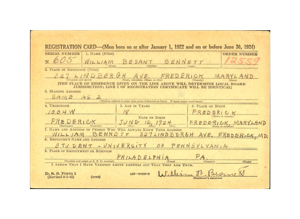 REGISTRATION CARD—(Men born on or after January 1, 1922 and on or before June 30, 1924)
SERIAL NUMBER 1. NAME (Print) ORDER NUMBER
605 WILLIAM BESANT BENNETT 12559
2. PLACE OF RESIDENCE (Print)
327 LINDBERGH AVE. FREDERICK MARYLAND
[THE PLACE OF RESIDENCE GIVEN ON THE LINE ABOVE WILL DETERMINE LOCAL BOARD
JURISDICTION; LINE 2 OF REGISTRATION CERTIFICATE WILL BE IDENTICAL]
3. MAILING ADDRESS
SAME AS 2
4. TELEPHONE 5. AGE IN YEARS 6. PLACE OF BIRTH
1054W 18 FREDERICK
DATE OF BIRTH
FREDERICK JUNE 16, 1924 FREDERICK, MARYLAND
7. NAME AND ADDRESS OF PERSON WHO WILL ALWAYS KNOW YOUR ADDRESS
WILLIAM BENNETT 327 LINDBERGH AVE. FREDERICK, MD.
8. EMPLOYER'S NAME AND ADDRESS
STUDENT - UNIVERSITY OF PENNSYLVANIA
9. PLACE OF EMPLOYMENT OR BUSINESS
PHILADELPHIA PA.
I AFFIRM THAT I HAVE VERIFIED ABOVE ANSWERS AND THAT THEY ARE TRUE.
D. S. S. Form 1
William B. Bennett